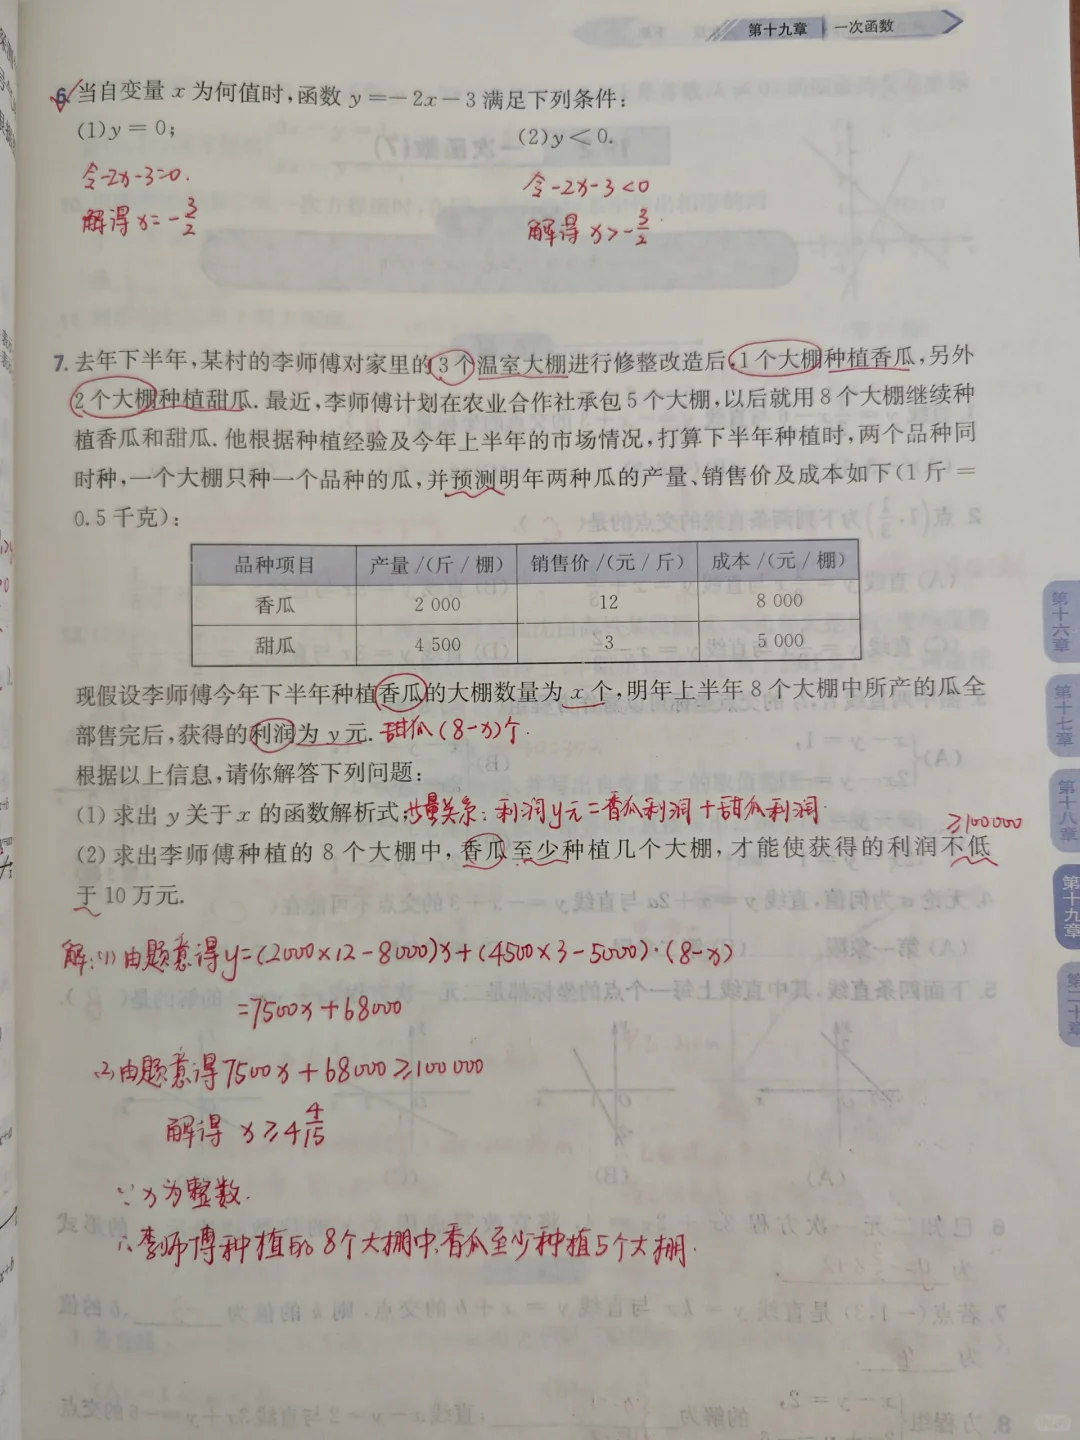 第十九章 一次函数
6. 当自变量 x 为何值时,函数 y=-2x-3 满足下列条件:
(1)y=0; (2)y<0.
令-2x-3=0. 令-2x-3<0
解得 x=-3/2 解得 x>-3/2.
7. 去年下半年,某村的李师傅对家里的 3 个温室大棚进行修整改造后,1 个大棚种植香瓜,另外
2 个大棚种植甜瓜. 最近,李师傅计划在农业合作社承包 5 个大棚,以后就用 8 个大棚继续种
植香瓜和甜瓜. 他根据种植经验及今年上半年的市场情况,打算下半年种植时,两个品种同
时种,一个大棚只种一个品种的瓜,并预测明年两种瓜的产量、销售价及成本如下(1 斤 =
0.5 千克):
品种项目 产量/(斤/棚) 销售价/(元/斤) 成本/(元/棚)
香瓜 2 000 12 8 000
甜瓜 4 500 3 5 000
现假设李师傅今年下半年种植香瓜的大棚数量为 x 个,明年上半年 8 个大棚中所产的瓜全
部售完后,获得的利润为 y 元. 甜瓜(8-x)个.
根据以上信息,请你解答下列问题:
(1) 求出 y 关于 x 的函数解析式; 量关系: 利润y元=香瓜利润+甜瓜利润.
≥100000
(2) 求出李师傅种植的 8 个大棚中,香瓜至少种植几个大棚,才能使获得的利润不低
于 10 万元.
解:(1) 由题意得y=(2000×12-8000)x+(4500×3-5000)·(8-x)
=7500x+68000
(2)由题意得7500x+68000≥100000
解得 x≥4 4/15
∵x为整数.
∴李师傅种植的8个大棚中,香瓜至少种植5个大棚.
第十六章
第十七章
第十八章
第十九章
第二十章